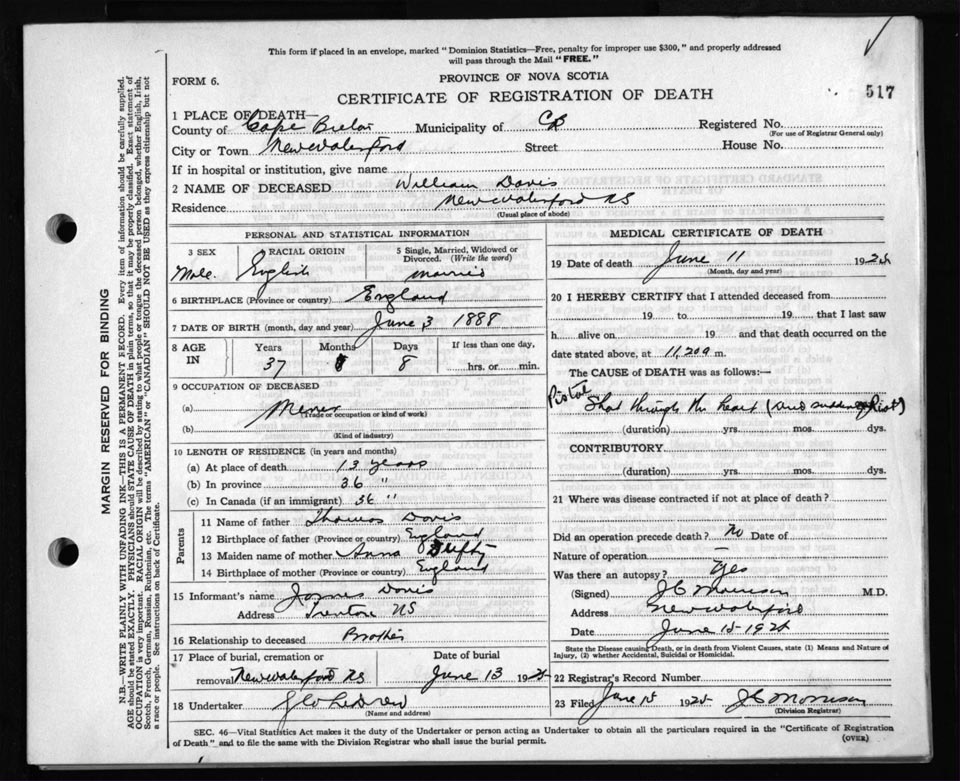 This form if placed in an envelope, marked "Dominion Statistics—Free, penalty for improper use $300," and properly addressed
will pass through the Mail "FREE."
FORM 6.
PROVINCE OF NOVA SCOTIA
CERTIFICATE OF REGISTRATION OF DEATH
517
1 PLACE OF DEATH—
County of Cape Breton Municipality of CB Registered No.
(For use of Registrar General only)
City or Town New Waterford Street House No.
If in hospital or institution, give name
2 NAME OF DECEASED William Davis
Residence New Waterford NS
(Usual place of abode)
PERSONAL AND STATISTICAL INFORMATION
3 SEX RACIAL ORIGIN 5 Single, Married, Widowed or
Divorced. (Write the word)
Male. English married
6 BIRTHPLACE (Province or country) England
7 DATE OF BIRTH (month, day and year) June 3 1888
8 AGE IN Years Months Days If less than one day,
37 8 hrs. or min.
9 OCCUPATION OF DECEASED
(a) Miner
(Trade or occupation or kind of work)
(b)
(Kind of industry)
10 LENGTH OF RESIDENCE (in years and months)
(a) At place of death 13 years
(b) In province 36 "
(c) In Canada (if an immigrant) 36 "
Parents
11 Name of father Thomas Davis
12 Birthplace of father (Province or country) England
13 Maiden name of mother Anna
14 Birthplace of mother (Province or country) England
15 Informant's name James Davis
Address Trenton NS
16 Relationship to deceased Brother
17 Place of burial, cremation or Date of burial
removal New Waterford NS June 13 1925
18 Undertaker
(Name and address)
MEDICAL CERTIFICATE OF DEATH
19 Date of death June 11 1925
(Month, day and year)
20 I HEREBY CERTIFY that I attended deceased from
19 to 19 that I last saw
h alive on 19 and that death occurred on the
date stated above, at 11,20 a m.
The CAUSE of DEATH was as follows:—
Pistol
Shot through the heart (and sudden Riot)
(duration) yrs. mos. dys.
CONTRIBUTORY
(duration) yrs. mos. dys.
21 Where was disease contracted if not at place of death?
Did an operation precede death? No Date of
Nature of operation —
Was there an autopsy? Yes
(Signed) J C Morrison M.D.
Address New Waterford
Date June 15 1925
State the Disease causing Death, or in death from Violent Causes, state (1) Means and Nature of
Injury, (2) whether Accidental, Suicidal or Homicidal.
22 Registrar's Record Number
23 Filed June 15 1925 J C Morrison
(Division Registrar)
SEC. 46—Vital Statistics Act makes it the duty of the Undertaker or person acting as Undertaker to obtain all the particulars required in the "Certificate of Registration
of Death" and to file the same with the Division Registrar who shall issue the burial permit.
(OVER)
MARGIN RESERVED FOR BINDING
N.B.—WRITE PLAINLY WITH UNFADING INK—THIS IS A PERMANENT RECORD. Every item of information should be carefully supplied.
AGE should be stated EXACTLY. PHYSICIANS should STATE CAUSE OF DEATH in plain terms, so that it may be properly classified. Exact statement of
OCCUPATION is very important. RACIAL ORIGIN will be described by stating to what people or tongue the deceased person belonged, whether English, Irish,
Scotch, French, German, Russian, Ruthenian, etc. The terms "AMERICAN" or "CANADIAN" SHOULD NOT BE USED as they express citizenship but not
a race or people. See instructions on back of Certificate.